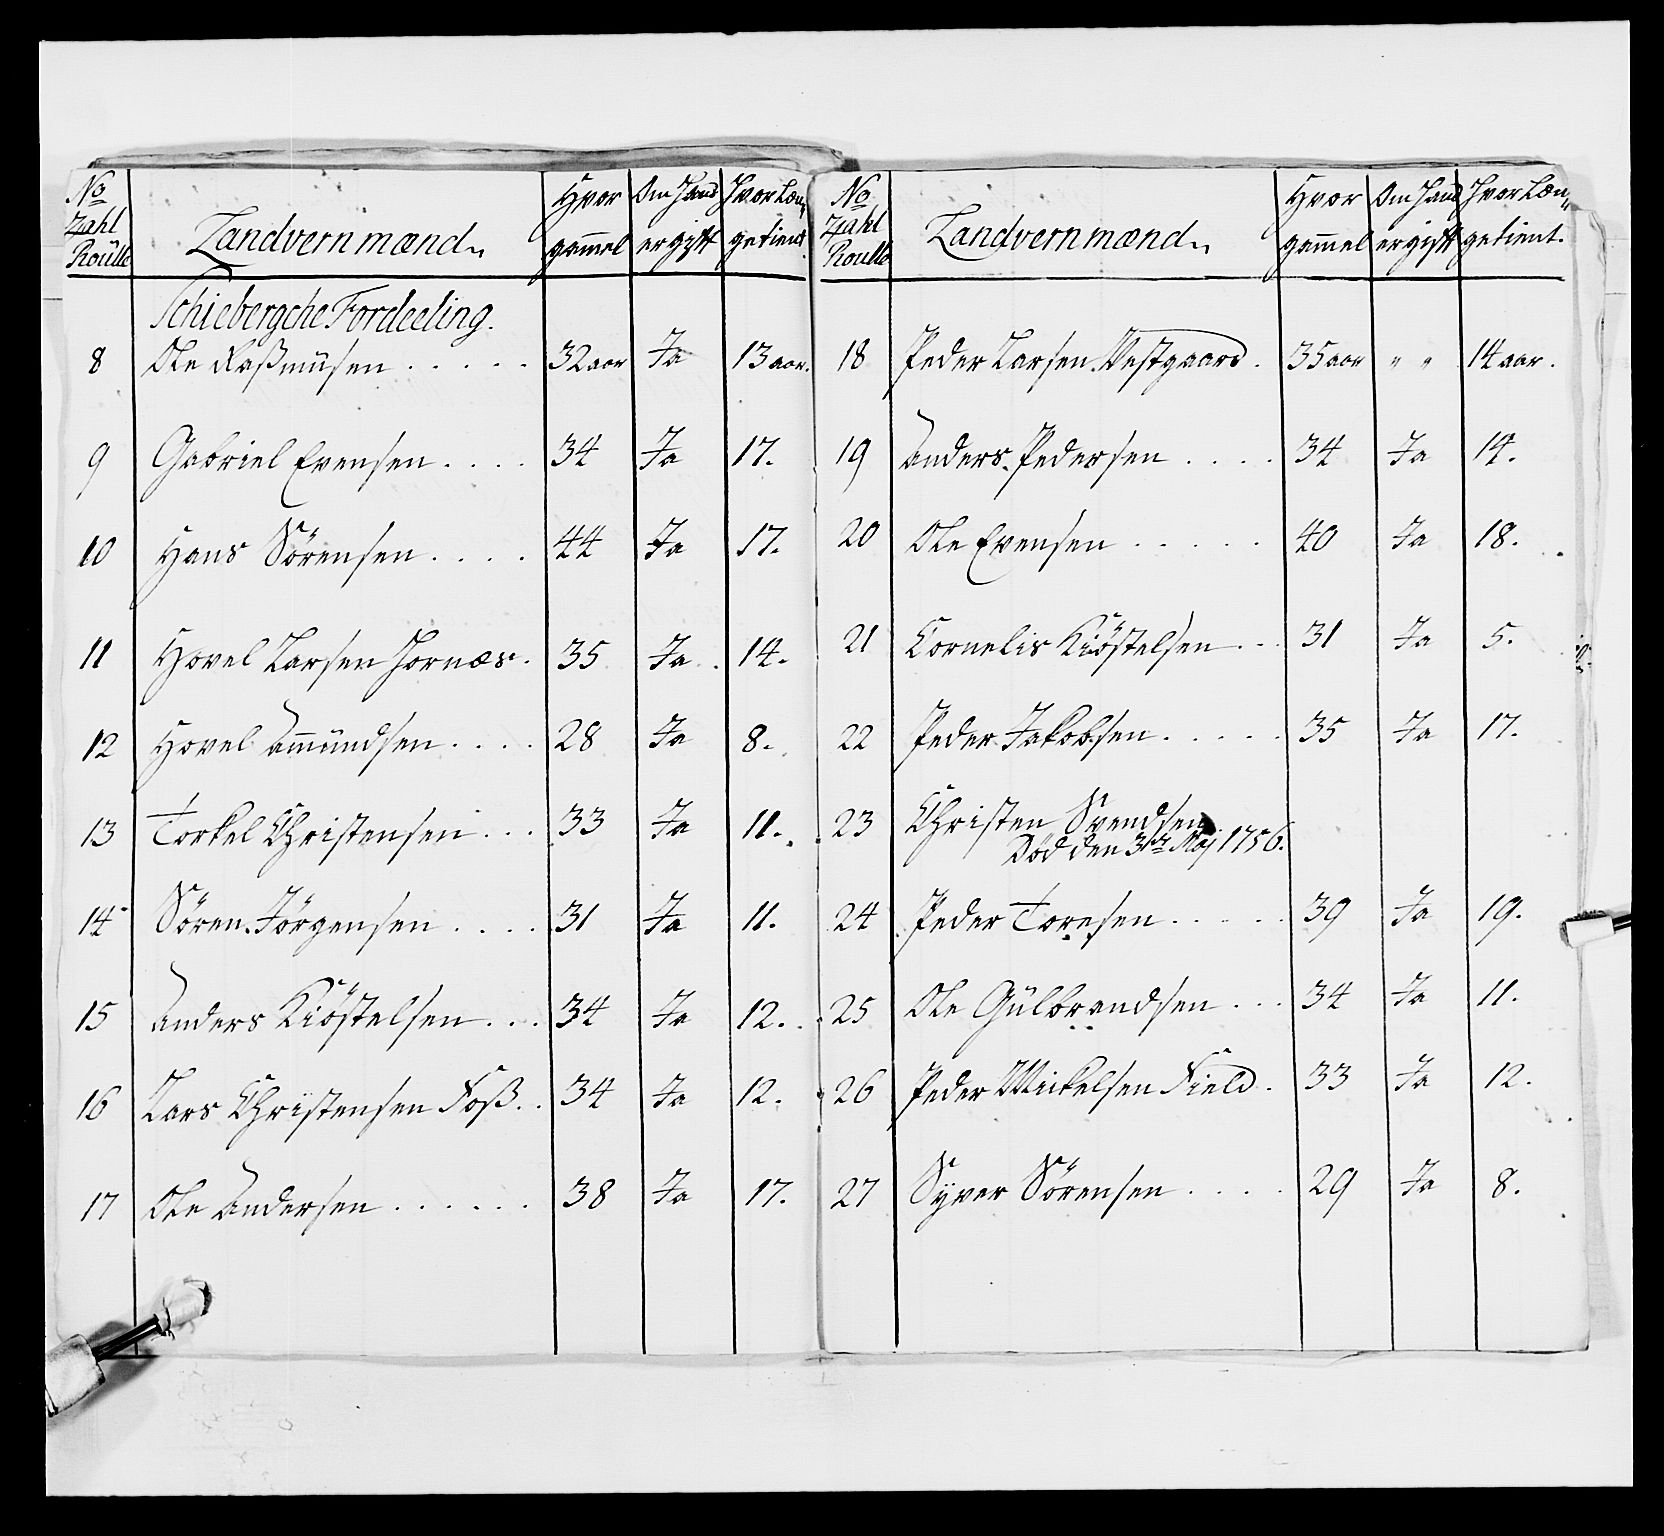 No Zahl Roulle | Landvernmænd | Hvor gammel | Om Hand er gift | Hvor Læn„ getient.
Schiebergche Fordeeling.
8 Ole Rasmüsen . . . . . 32 aar Ja 13 aar.
9 Gabriel Evensen . . . . 34 Ja 17.
10 Hans Sörensen . . . . 44 Ja 17.
11 Hovel Larsen Hornæs . 35 Ja . 14.
12 Hovel Ammündsen . . . . 28 Ja 8.
13 Torkel Christensen . . . 33 Ja 11.
14 Sören Jörgensen . . . . 31 Ja 11.
15 Anders Kiöstelsen . . . 34 Ja 12.
16 Lars Christensen Foß . . 34 Ja 12.
17 Ole Andersen . . . . . . 38 Ja 17.
No Zahl Roulle | Landvernmænd | Hvor gammel | Om Hand er gift | Hvor Læn„ getient.
18 Peder Larsen Westgaard . 35 aar „ „ 14 aar.
19 Anders Pedersen . . . . 34 Ja 14.
20 Ole Evensen . . . . . 40 Ja 18.
21 Cornelis Kiöstelsen . . 31 Ja 5.
22 Peder Jakobsen . . . . . 35 Ja 17.
23 Christen Svendsen
Död den 3de Maj 1756.
24 Peder Toresen . . . . . 39 Ja 19.
25 Ole Gülbrandsen . . . 34 Ja 11.
26 Peder Mickelsen Field . 33 Ja 12.
27 Syver Sörensen . . . . 29 Ja 8.